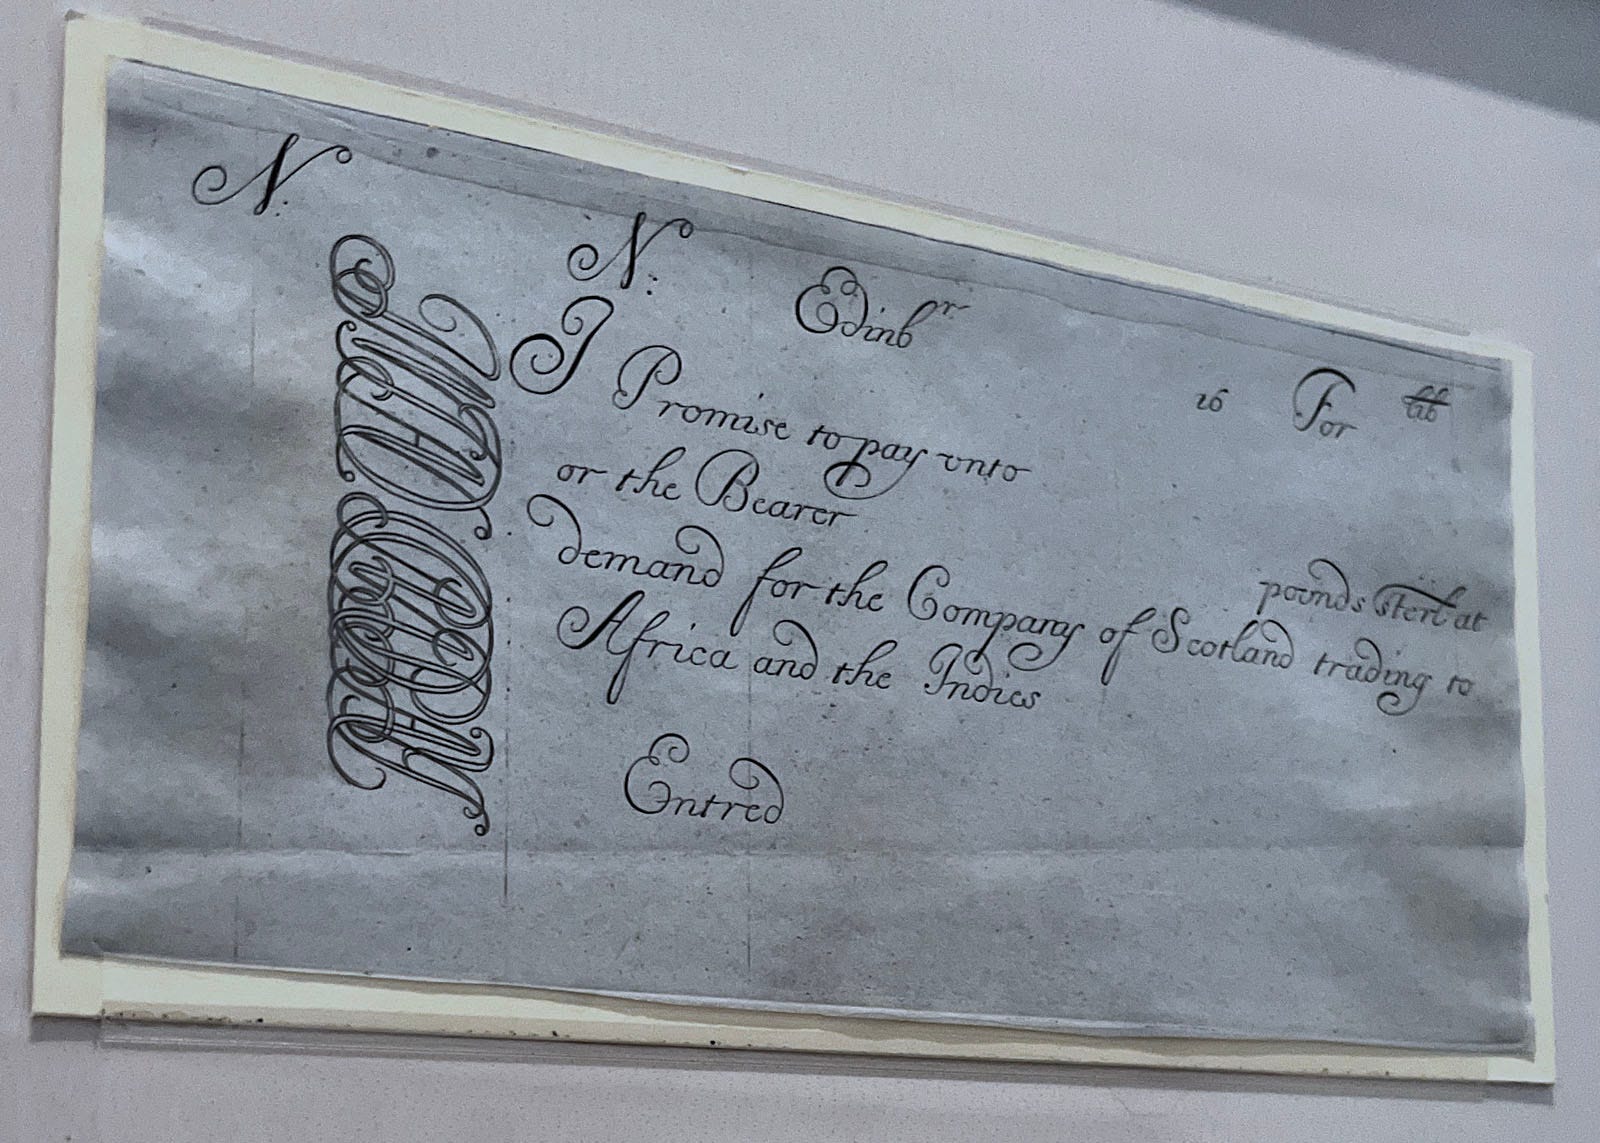 N.
N:
Edinbr 16 For lib
I Promise to pay vnto
or the Bearer pounds sterl at
demand for the Company of Scotland trading to
Africa and the Indies
Entred